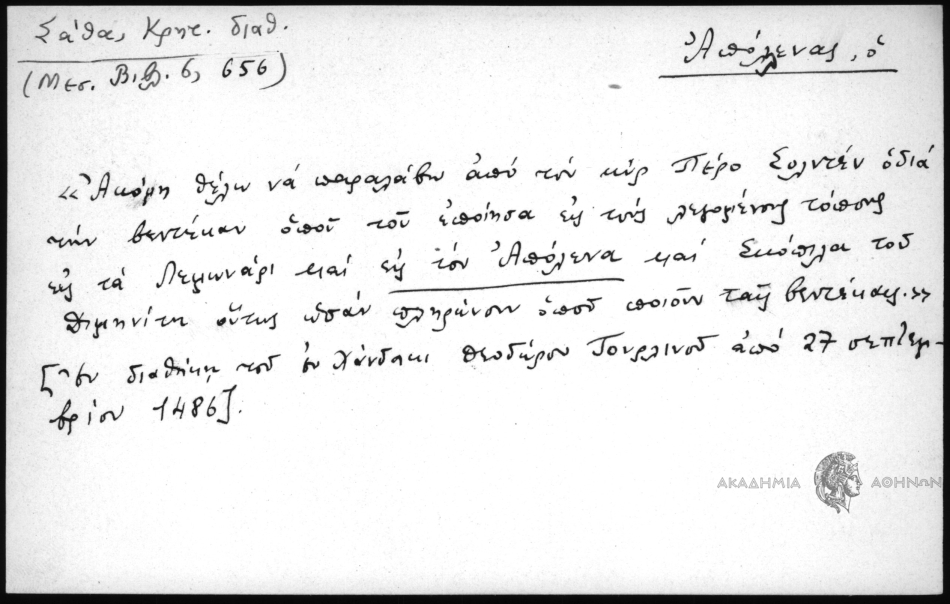 Σάθα, Κρητ. διαθ.
(Μεσ. Βιβλ. 6, 656)
Ἀπόλενας, ὁ
«Ἀκόμη θέλω νά παραλάβω ἀπό τόν κύρ Πέρο Σολντέν ὁδιά
τήν βεντέκαν ὁποῦ τοῦ ἐποίησα εἰς τούς λεγομένους τόπους
εἰς τά Λεμωνάρι καί εἰς τόν Ἀπόλενα καί Σκόπελα τοῦ
οὕτως ὡσάν πληρώνουν ὁποῦ ποιοῦν ταῖς βεντέκαις.»
[Ἐν διαθήκῃ τοῦ ἐν Χάνδακι Θεοδώρου Τουρλινοῦ ἀπό 27 σεπτεμ-
βρίου 1486].
ΑΚΑΔΗΜΙΑ ΑΘΗΝΩΝ